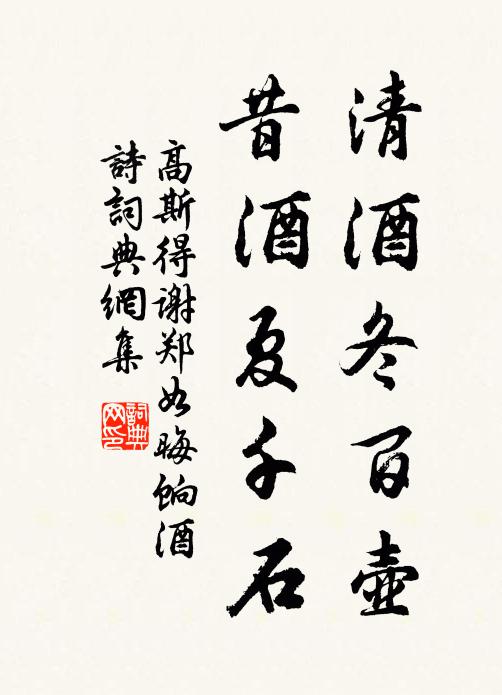 清酒冬百壶
昔酒夏千石
高斯得谢郑如晦饷酒
詩詞典網集
詞典网印